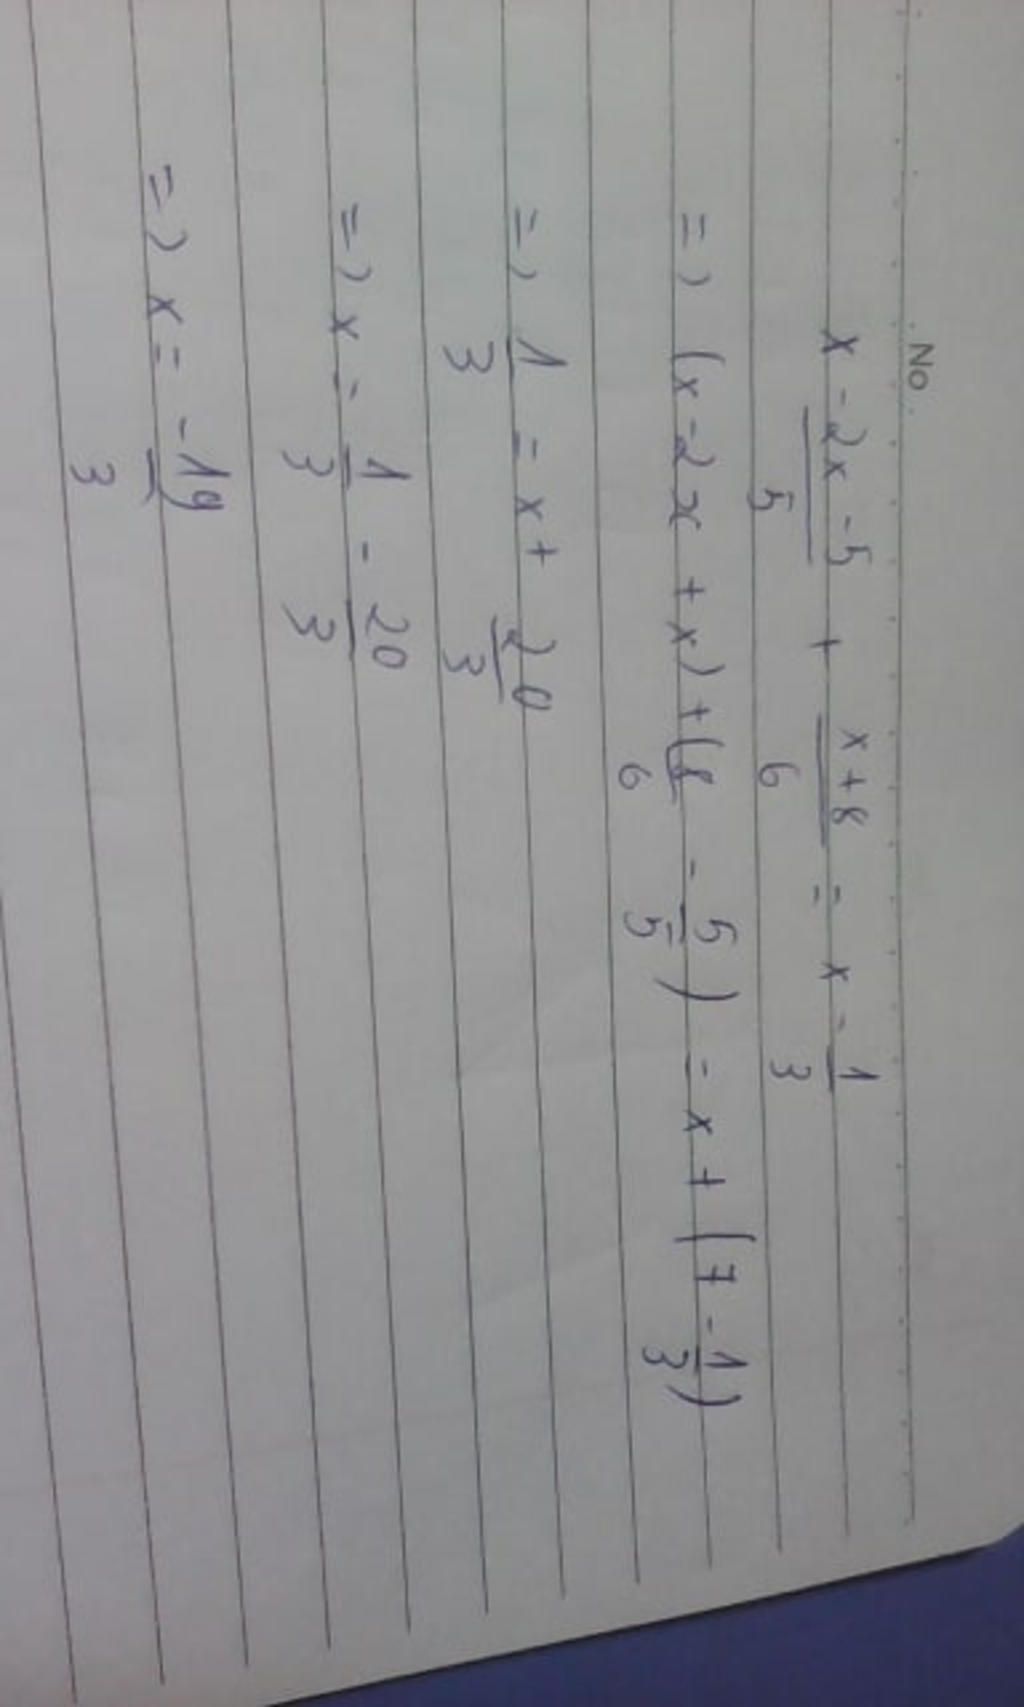 No.
x - 2x - 5/5 + x + 8/6 = x - 1/3
=> (x - 2x + x) + (8/6 - 5/5) = x + (7 - 1/3)
=> 1/3 = x + 20/3
=> x = 1/3 - 20/3
=> x = -19/3